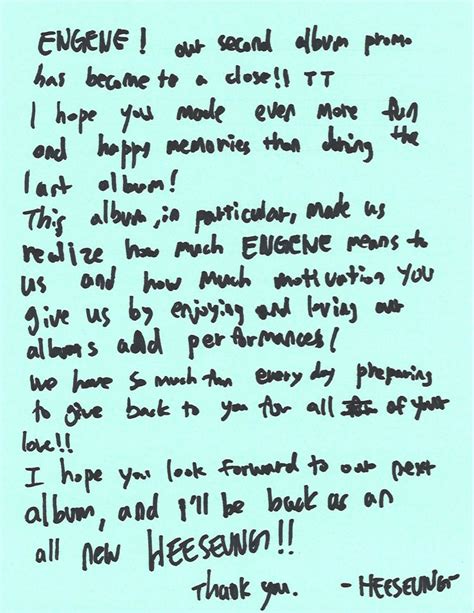 ENGENE! our second album promo
has become to a close!! TT
I hope you made even more fun
and happy memories than during the
last album!
This album, in particular, made us
realize how much ENGENE means to
us and how much motivation you
give us by enjoying and loving our
albums and performances!
we have so much fun every day preparing
to give back to you for all of your
love!!
I hope you look forward to our next
album, and I'll be back as an
all new HEESEUNG!!
Thank you. - HEESEUNG